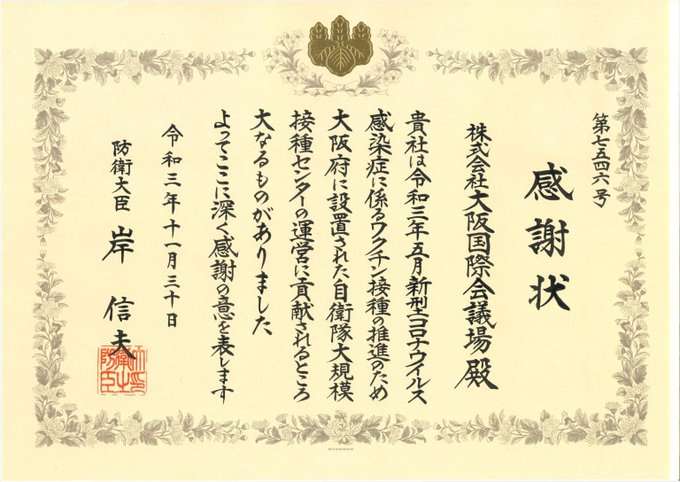 第七五四六号
感謝状
株式会社大阪国際会議場殿
貴社は令和三年五月新型コロナウイルス
感染症に係るワクチン接種の推進のため
大阪府に設置された自衛隊大規模
接種センターの運営に貢献されるところ
大なるものがありました
よってここに深く感謝の意を表します
令和三年十一月三十日
防衛大臣 岸信夫
防衛大臣之印